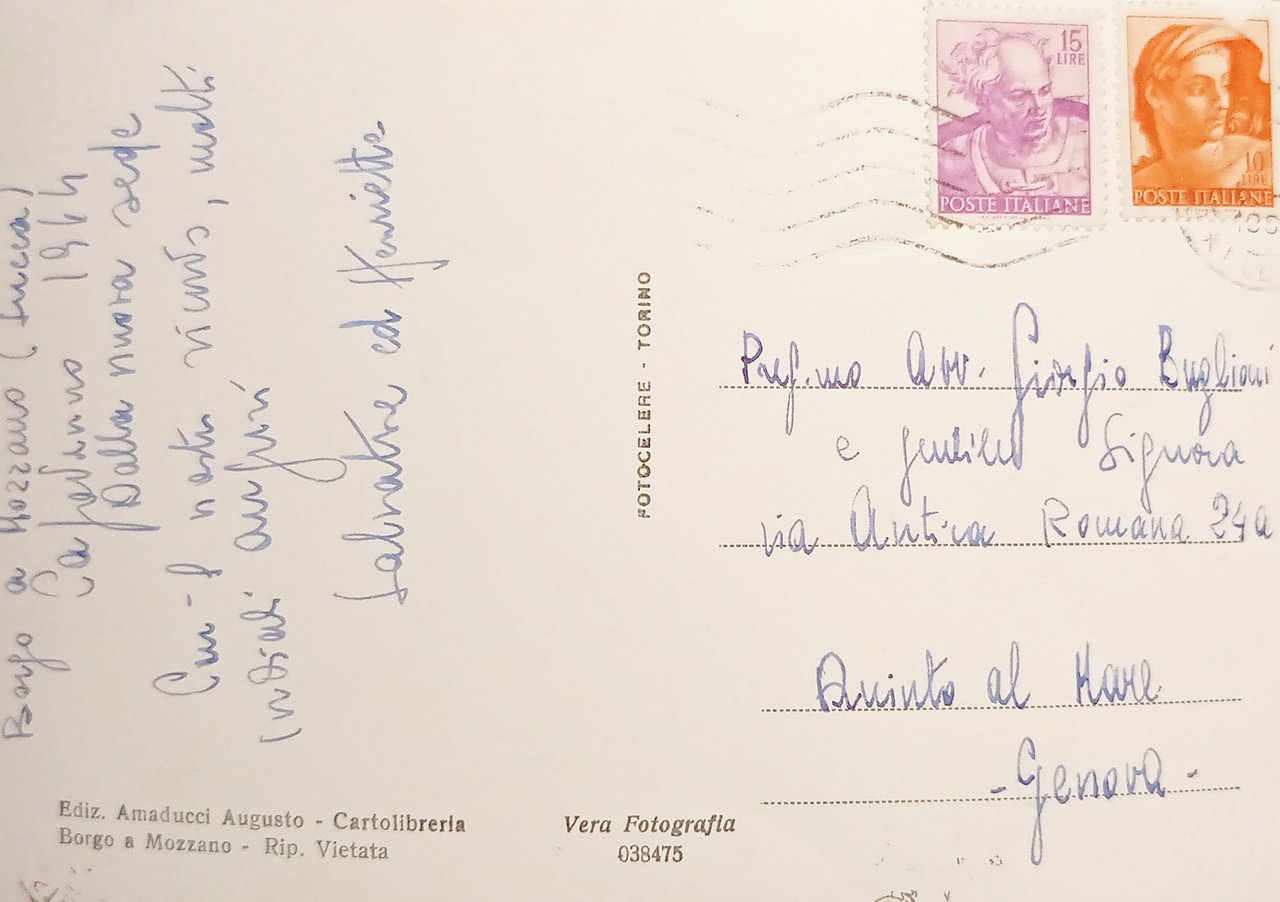 Borgo a Mozzano (Lucca)
Capodanno 1964
Dalla nuova sede
Con i nostri vicini, molti
cordiali auguri
Salvatore ed Henriette
15
LIRE
POSTE ITALIANE
10
LIRE
POSTE ITALIANE
FOTOCELERE - TORINO
Preg.mo Avv. Giorgio Buglioni
e gentile Signora
via Antica Romana 24a
Quinto al Mare
- Genova -
Ediz. Amaducci Augusto - Cartolibreria
Borgo a Mozzano - Rip. Vietata
Vera Fotografia
038475